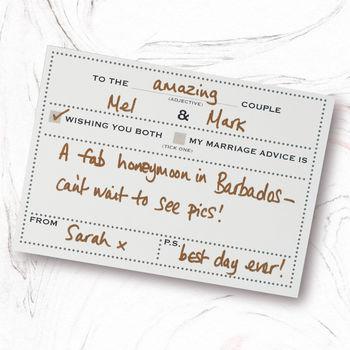 TO THE amazing COUPLE
(ADJECTIVE)
Mel & Mark
WISHING YOU BOTH MY MARRIAGE ADVICE IS
(TICK ONE)
A fab honeymoon in Barbados-
can't wait to see pics!
FROM Sarah x
P.S. best day ever!